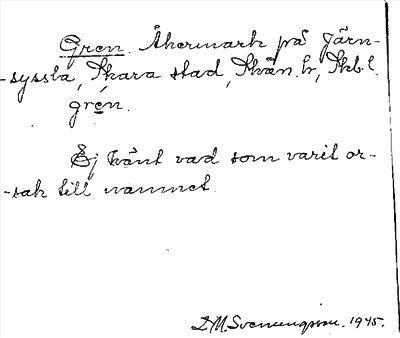 Gren. Åkermark på Järn-
-syssla, Skara stad, Skån. h., Skb. l.
gren.
Ej känt vad som varit or-
-sak till namnet.
D. M. Svenungsson. 1945.